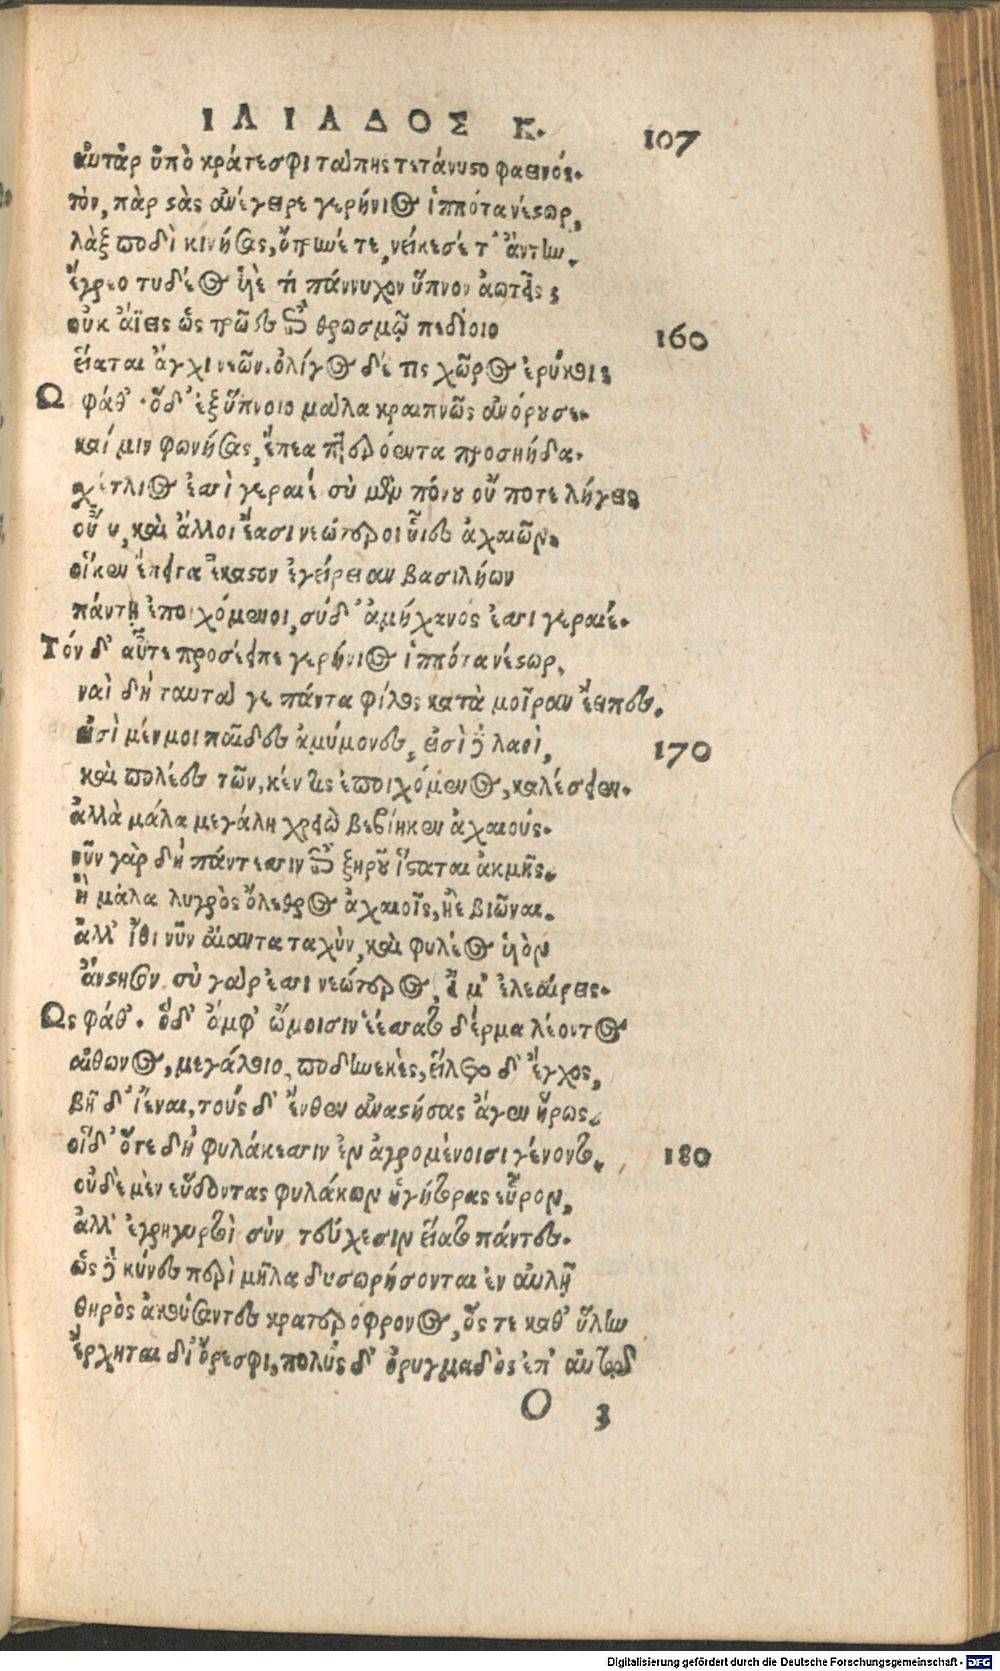 ΙΛΙΑΔΟΣ Κ. 107
αὐτὰρ ὑπὸ κράτεσφι τάπης τετάνυστο φαεινός.
τὸν, πὰρ στὰς ἀνέγειρε γερήνιος ἱππότα νέστωρ,
λὰξ ποδὶ κινήσας, ὄτρυνέ τε, νείκεσέ τ' ἄντην.
ἔγρεο τυδέος ὑιὲ τί πάννυχον ὕπνον ἀωτεῖς;
οὐκ ἀΐεις ὡς τρῶες ἐπὶ θρωσμῷ πεδίοιο 160
εἵαται ἄγχι νεῶν. ὀλίγος δέ τις χῶρος ἐρύκει;
Ως φάθ'. ὅδ' ἐξ ὕπνοιο μάλα κραιπνῶς ἀνόρουσε.
καί μιν φωνήσας, ἔπεα πτερόεντα προσηύδα.
σχέτλιός ἐσσι γεραιέ σὺ μὲν πόνου οὔ ποτε λήγεις
οὔ νυ, καὶ ἄλλοι ἔασι νεώτεροι ὗιες ἀχαιῶν.
οἵ κεν ἔπειτα ἕκαστον ἐγείρειαν βασιλήων
πάντη ἐποιχόμενοι, σύ δ' ἀμήχανός ἐσσι γεραιέ.
Τόν δ' αὖτε προσέειπε γερήνιος ἱππότα νέστωρ,
ναὶ δὴ ταῦτά γε πάντα φίλος κατὰ μοῖραν ἔειπες.
εἰσὶ μέν μοι παῖδες ἀμύμονες, εἰσὶ δὲ λαοὶ, 170
καὶ πολέες τῶν, κέν τις ἐποιχόμενος, καλέσειεν.
ἀλλὰ μάλα μεγάλη χρειὼ βεβίηκεν ἀχαιούς.
νῦν γὰρ δὴ πάντεσσιν ἐπὶ ξηροῦ ἵσταται ἀκμῆς.
ἢ μάλα λυγρὸς ὄλεθρος ἀχαιοῖς, ἠὲ βιῶναι.
ἀλλ' ἴθι νῦν αἴαντα ταχὺν, καὶ φυλέος ὑιὸν
ἄνστησον. σὺ γάρ ἐσσι νεώτερος, εἴ μ' ἐλεαίρεις.
Ως φάθ'. ὅδ' ἀμφ' ὤμοισιν ἑέσσατο δέρμα λέοντος
αἴθωνος, μεγάλοιο, ποδηνεκὲς, εἵλετο δ' ἔγχος,
βῆ δ' ἴεναι, τοὺς δ' ἔνθεν ἀναστήσας ἄγεν ἥρως.
οἵδ' ὅτε δὴ φυλάκεσσιν ἐν ἀγρομένοισι γένοντο, 180
οὐδὲ μὲν εὕδοντας φυλάκων ἡγήτορας εὗρον,
ἀλλ' ἐγρηγορτὶ σὺν τεύχεσιν εἵατο πάντες.
ὡς δὲ κύνες περὶ μῆλα δυσωρήσονται ἐν αὐλῇ
θηρὸς ἀκούσαντες κρατερόφρονος, ὅς τε καθ' ὕλην
ἔρχηται δι' ὄρεσφι, πολὺς δ' ὀρυγμαδὸς ἐπ' αὐτῷ
O 3
Digitalisierung gefördert durch die Deutsche Forschungsgemeinschaft - DFG